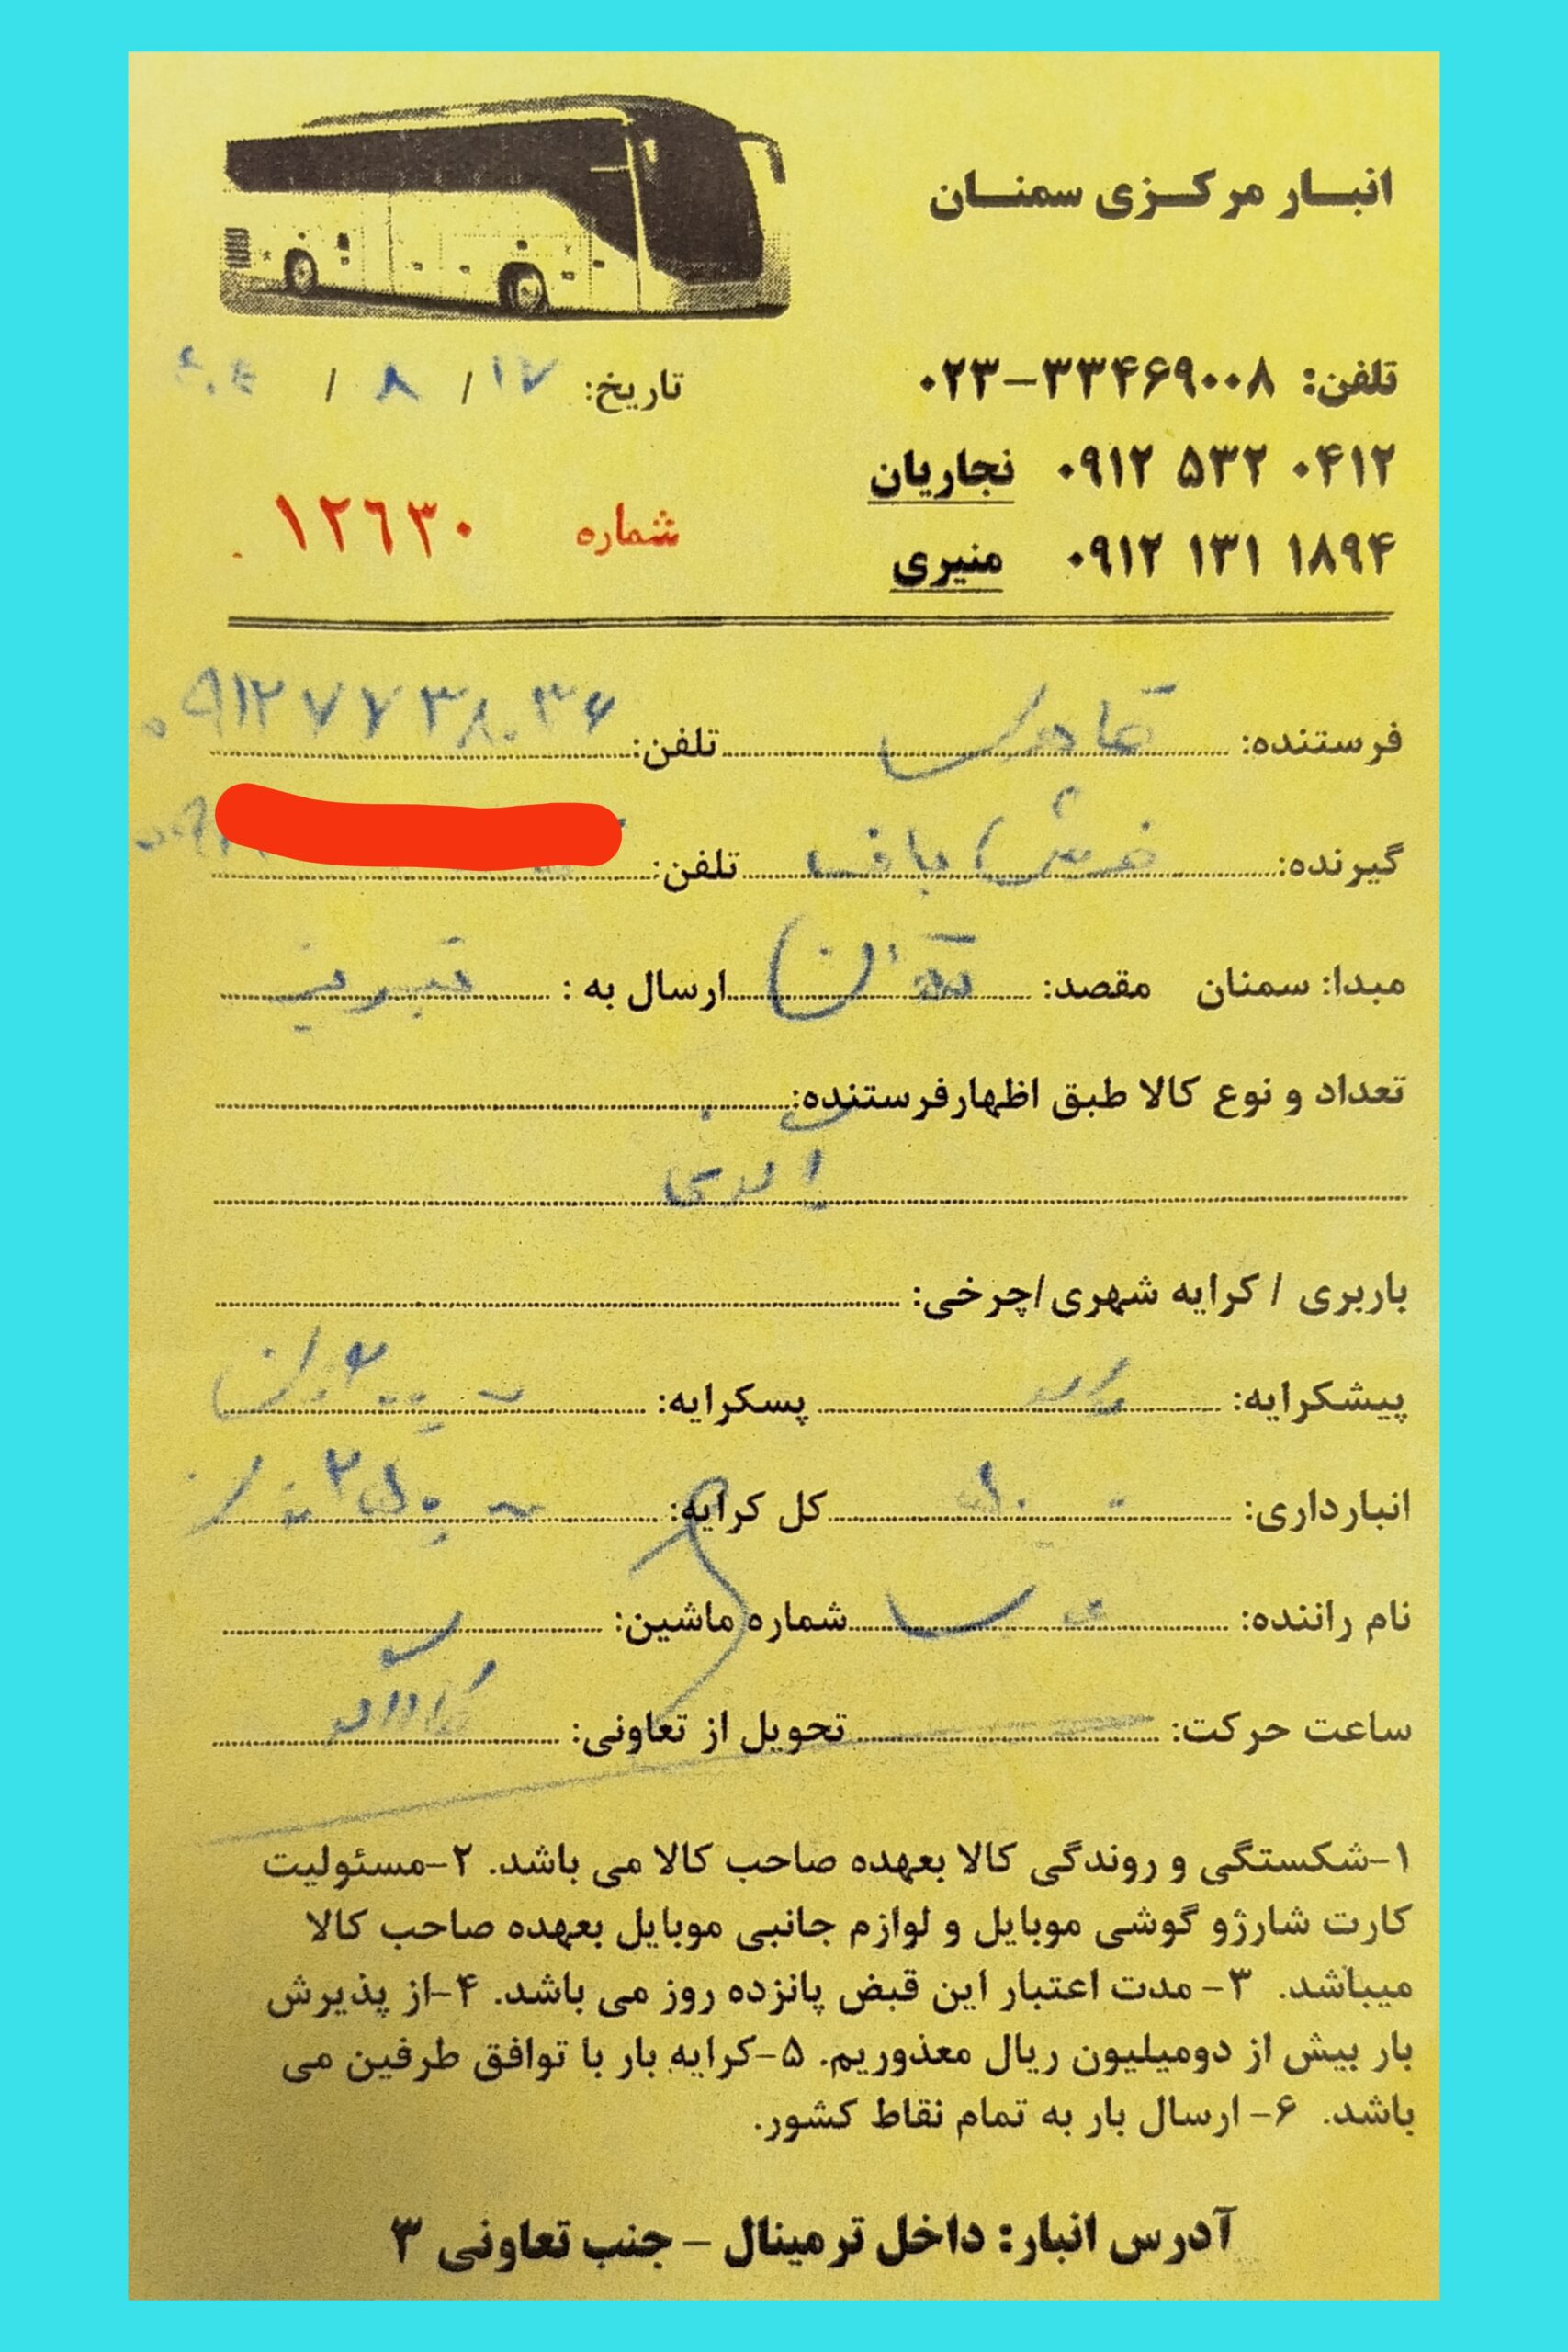 انبار مرکزی سمنان
تلفن: ۰۲۳-۳۳۴۶۹۰۰۸
تاریخ: ۱۷ / ۸ /
۰۹۱۲ ۵۳۲ ۰۴۱۲ نجاریان
شماره ۱۲٦۳۰
۰۹۱۲ ۱۳۱ ۱۸۹۴ منیری
فرستنده: تلفن: ۰۹۱۲۷۷۳۸۰۳۶
گیرنده: فرش باف تلفن:
مبدا: سمنان مقصد: تهران ارسال به : تبریز
تعداد و نوع کالا طبق اظهارفرستنده:
باربری / کرایه شهری/چرخی:
پیشکرایه: پسکرایه:
انبارداری: کل کرایه:
نام راننده: شماره ماشین:
ساعت حرکت: تحویل از تعاونی:
۱-شکستگی و روندگی کالا بعهده صاحب کالا می باشد. ۲-مسئولیت
کارت شارژو گوشی موبایل و لوازم جانبی موبایل بعهده صاحب کالا
میباشد. ۳- مدت اعتبار این قبض پانزده روز می باشد. ۴-از پذیرش
بار بیش از دومیلیون ریال معذوریم. ۵-کرایه بار با توافق طرفین می
باشد. ۶- ارسال بار به تمام نقاط کشور.
آدرس انبار: داخل ترمینال - جنب تعاونی ۳